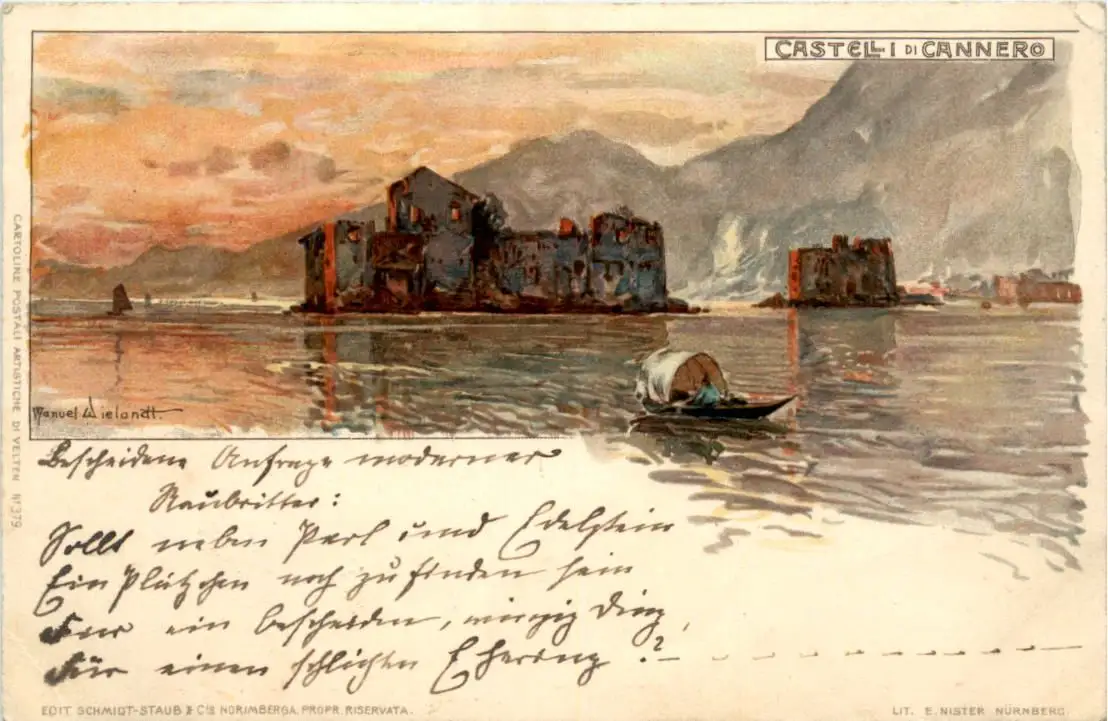 CASTELLI DI CANNERO
Manuel Wielandt.
CARTOLINE POSTALI ARTISTICHE DI VELTEN No 379.
Bescheidene Anfrage moderner
Raubritter:
Sollt neben Perl und Edelstein
Ein Plätzchen noch zu finden sein
Für ein bescheiden, winzig Ding,
Für einen schlichten Ehering?
EDIT SCHMIDT-STAUB & Cie NORIMBERGA. PROPR. RISERVATA.
LIT. E. NISTER NÜRNBERG.